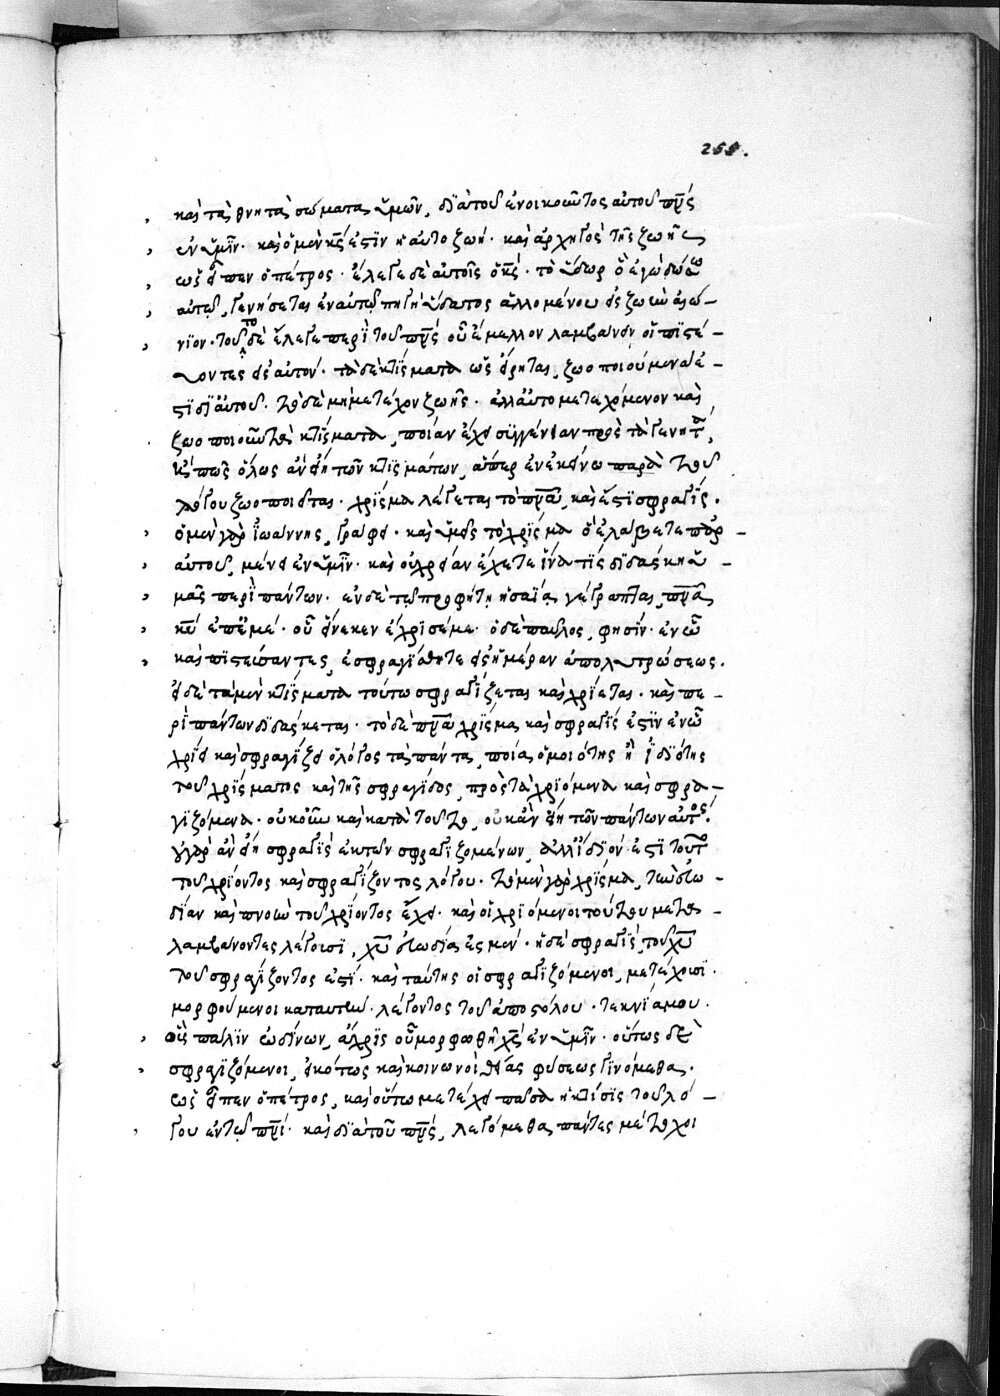 259.
καὶ τὰ θνητὰ σώματα ὑμῶν, διὰ τοῦ ἐνοικοῦντος αὐτοῦ πν̅ς
ἐν ὑμῖν· καὶ ὁ μὲν κ̅ς ἐστὶν ἡ αὐτοζωή· καὶ ἀρχηγὸς τῆς ζωῆς
ὡς εἶπεν ὁ πέτρος· ἔλεγε δὲ αὐτοῖς ὁ κ̅ς· τὸ ὕδωρ ὃ ἐγὼ δώσω
αὐτῷ, γενήσεται ἐν αὐτῷ πηγὴ ὕδατος ἀλλομένου εἰς ζωὴν αἰώ-
νιον· τοῦτο δὲ ἔλεγε περὶ τοῦ πν̅ς οὗ ἔμελλον λαμβάνειν οἱ πιστεύ-
οντες εἰς αὐτόν· τὰ δὲ κτίσματα ὡς εἴρηται, ζωοποιούμενα ἐ-
στὶ δι' αὐτοῦ. τὸ δὲ μὴ μετέχον ζωῆς· ἀλλ' αὐτὸ μετεχόμενον καὶ
ζωοποιοῦν τὰ κτίσματα, ποίαν ἔχει συγγένειαν πρὸς τὰ γενητά,
ἢ πῶς ὅλως ἂν εἴη τῶν κτισμάτων, ἅπερ ἐν ἐκείνῳ παρὰ τοῦ
λόγου ζωοποιεῖται· χρῖσμα λέγεται τὸ πν̅α, καὶ ἔστι σφραγίς.
ὁ μὲν γὰρ ἰωάννης, γράφει· καὶ ὑμεῖς τὸ χρίσμα ὃ ἐλάβετε παρ-
αὐτοῦ, μένει ἐν ὑμῖν· καὶ οὐ χρείαν ἔχετε ἵνα τὶς διδάσκῃ ὑ-
μᾶς περὶ πάντων· ἐν δὲ τῷ προφήτῃ ἡσαΐᾳ γέγραπται, πν̅α
κ̅υ ἐπ' ἐμέ· οὗ εἵνεκεν ἔχρισέ με· ὁ δὲ παῦλος, φησίν· ἐν ᾧ
καὶ πιστεύσαντες, ἐσφραγίσθητε εἰς ἡμέραν ἀπολυτρώσεως.
εἰ δὲ τὰ μὲν κτίσματα τούτῳ σφραγίζεται καὶ χρίεται· καὶ πε-
ρὶ πάντων διδάσκεται· τὸ δὲ πν̅α χρῖσμα καὶ σφραγίς ἐστὶν ἐν ᾧ
χρίει καὶ σφραγίζει ὁ λόγος τὰ πάντα, ποία ὁμοιότης ἢ ἰδιότης
τοῦ χρίσματος καὶ τῆς σφραγίδος, πρὸς τὰ χριόμενα καὶ σφρα-
γιζόμενα· οὐκοῦν καὶ κατὰ τοῦτο, οὐκ ἂν εἴη τῶν πάντων αὐτό·
οὐ γὰρ ἂν εἴη σφραγὶς ἐκ τῶν σφραγιζομένων, ἀλλ' ἴδιόν ἐστι τοῦτο
τοῦ χρίοντος καὶ σφραγίζοντος λόγου· τὸ μὲν γὰρ χρῖσμα, τὴν εὐω-
δίαν καὶ πνοὴν τοῦ χρίοντος ἔχει· καὶ οἱ χριόμενοι τούτου μετα-
λαμβάνοντες λέγουσι, χ̅υ εὐωδία ἐσμέν· ἡ δὲ σφραγὶς, τοῦ χ̅υ
τοῦ σφραγίζοντος ἐστί· καὶ ταύτης οἱ σφραγιζόμενοι, μετέχουσι.
μορφούμενοι κατ' αὐτὴν· λέγοντος τοῦ ἀποστόλου· τεκνία μου.
οὓς πάλιν ὠδίνων, ἄχρις οὗ μορφωθῇ χ̅ς ἐν ὑμῖν· οὕτως δὲ
σφραγιζόμενοι, εἰκότως καὶ κοινωνοὶ θείας φύσεως γινόμεθα.
ὡς εἶπεν ὁ πέτρος, καὶ οὕτω μετέχει πᾶσα ἡ κτίσις τοῦ λό-
γου ἐν τῷ πν̅ι· καὶ διὰ τοῦ πν̅ς, λεγόμεθα πάντες μέτοχοι